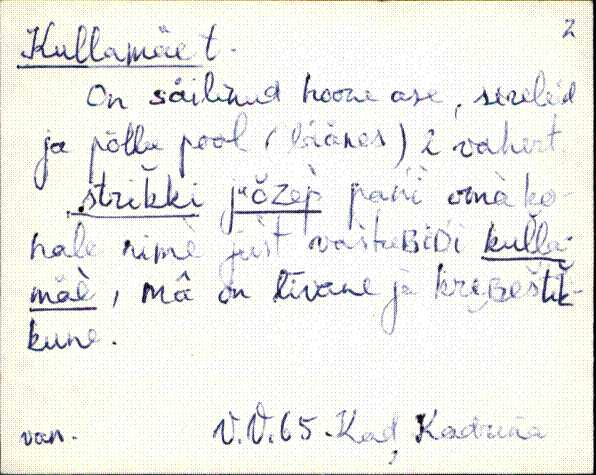 2
Kullamäe t.
On säilinud hoone ase, sirelid
ja põllu pool (läänes) 2 vahert.
strikki jŏzep pańi omà ko-
hale nimè just vastuBiDi kulla-
mäè, mâ on līvane jà kreBeštik-
kune.
van. V.V.65. Kad, Kadrina